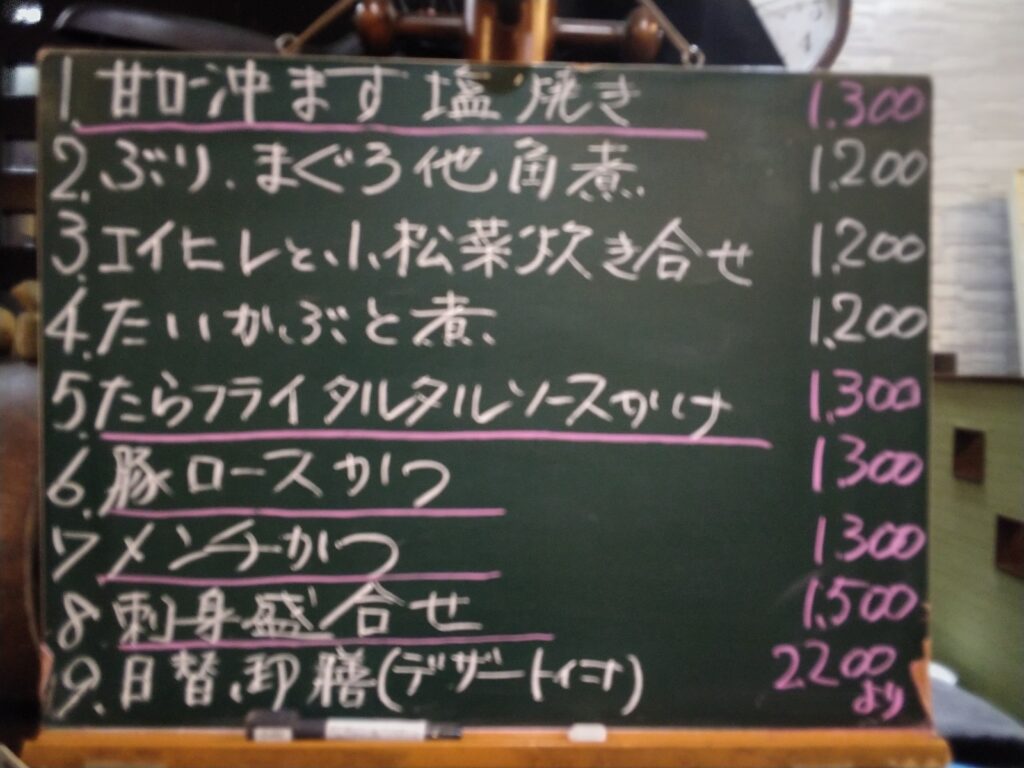 1. 甘口沖ます 塩焼き 1.300
2. ぶり、まぐろ他角煮 1.200
3. エイヒレと小松菜炊き合せ 1.200
4. たいかぶと煮 1.200
5. たらフライタルタルソースかけ 1.300
6. 豚ロースかつ 1.300
7. メンチかつ 1.300
8. 刺身盛合せ 1.500
9. 日替り御膳(デザート付) 2200
より